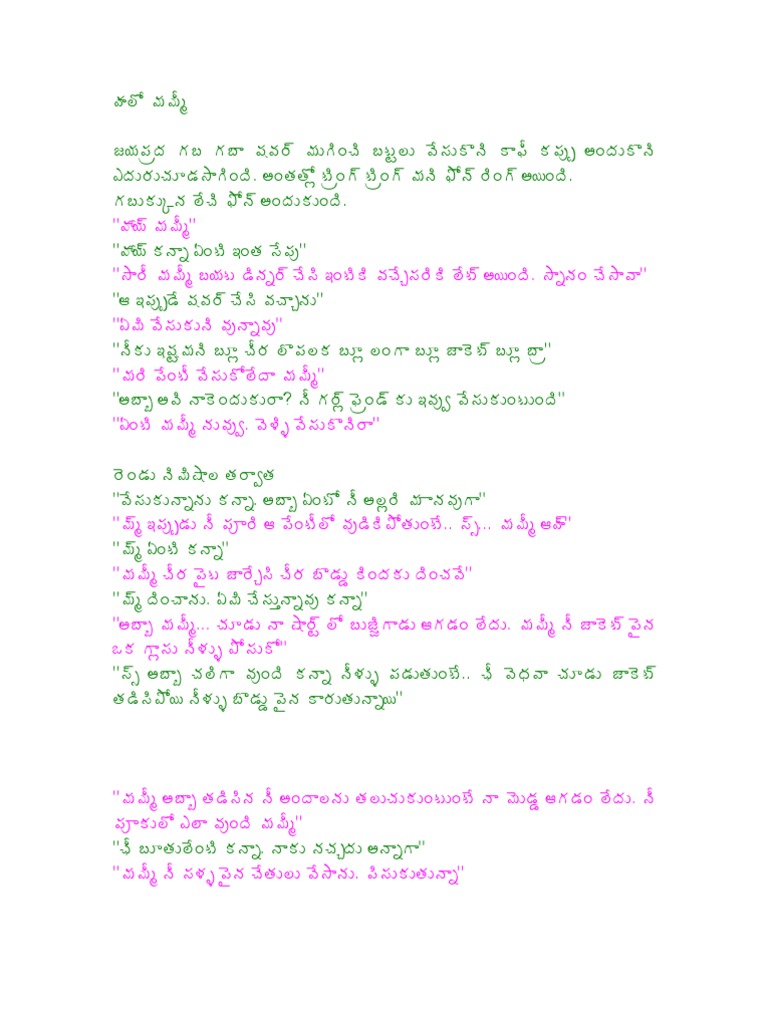 హలో మమ్మీ
జయప్రద గబ గబా షవర్ ముగించి బట్టలు వేసుకొని కాఫీ కప్పు అందుకొని
ఎదురుచూడసాగింది. అంతత్లో ట్రింగ్ ట్రింగ్ మని ఫోన్ రింగ్ అయింది.
గబుక్కున లేచి ఫోన్ అందుకుంది.
"హాయ్ మమ్మీ"
"హాయ్ కన్నా ఏంటి ఇంత సేపు"
"సారీ మమ్మీ బయట డిన్నర్ చేసి ఇంటికి వచ్చేసరికి లేట్ అయింది. స్నానం చేసావా"
"ఆ ఇప్పుడే షవర్ చేసి వచ్చాను"
"ఏమి వేసుకుని వున్నావు"
"నీకు ఇష్టమని బ్లూ చీర లొపలక బ్లూ లంగా బ్లూ జాకెట్ బ్లూ బ్రా"
"మరి పేంటీ వేసుకోలేదా మమ్మీ"
"అబ్బా అవి నాకెందుకురా? నీ గర్ల్ ఫ్రెండ్ కు ఇవ్వు వేసుకుంటుంది"
"ఏంటి మమ్మీ నువ్వు. వెళ్ళి వేసుకొనిరా"
రెండు నిమిషాల తర్వాత
"వేసుకున్నాను కన్నా. అబ్బా ఏంటో నీ అల్లరి మానవుగా"
"మ్మ్ ఇప్పుడు నీ పూరి ఆ పేంటీలో వుడికిపోతుంటే.. స్స్... మమ్మీ ఆహ్"
"మ్మ్ ఏంటి కన్నా"
"మమ్మీ చీర పైట జార్చేసి చీర బొడ్డు కిందకు దించవే"
"మ్మ్ దించాను. ఏమి చేస్తున్నావు కన్నా"
"అబ్బా మమ్మీ... చూడు నా షార్ట్ లో బుజ్జిగాడు ఆగడం లేదు. మమ్మీ నీ జాకెట్ పైన
ఒక గ్లాసు నీళ్ళు పోసుకో"
"స్స్ అబ్బా చలిగా వుంది కన్నా నీళ్ళు పడుతుంటే.. ఛీ వెధవా చూడు జాకెట్
తడిసిపోయి నీళ్ళు బొడ్డు పైన కారుతున్నాయి"
"మమ్మీ అబ్బా తడిసిన నీ అందాలను తలుచుకుంటుంటే నా మొడ్డ ఆగడం లేదు. నీ
పూకులో ఎలా వుంది మమ్మీ"
"ఛీ బూతులేంటి కన్నా. నాకు నచ్చదు అన్నాగా"
"మమ్మీ నీ సళ్ళపైన చేతులు వేసాను. పిసుకుతున్నా"